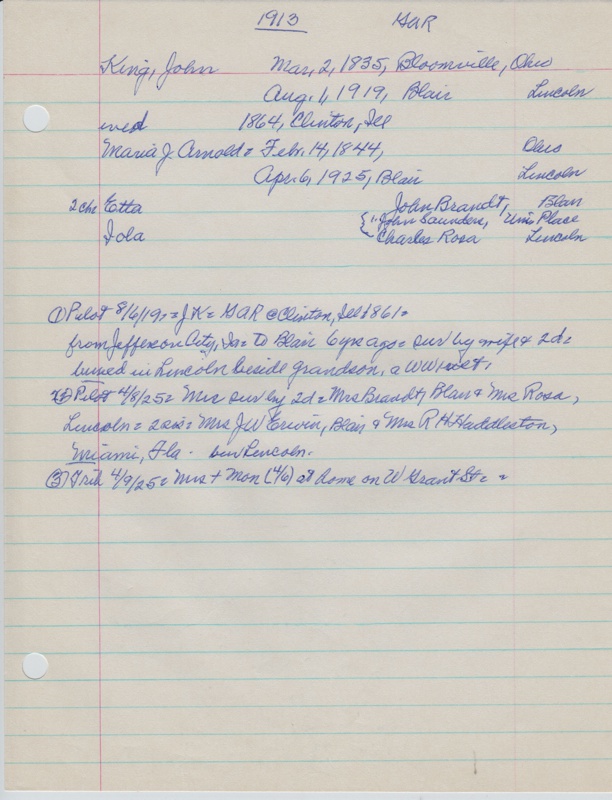 1913 GAR
King, John Mar, 2, 1835, Bloomville, Ohio
Aug. 1, 1919, Blair Lincoln
wed 1864, Clinton, Ill
Maria J. Arnold = Febr. 14, 1844, Ohio
Apr. 6, 1925, Blair Lincoln
2 ch: Etta John Brandt, Blair
{ "John Saunders, Univ Place
Iola Charles Rosa Lincoln
① Pilot 8/6/19 = J K = GAR @ Clinton, Ill 1861 =
from Jefferson City, Ia = to Blair 6 yrs ago = sur by wife & 2d =
buried in Lincoln beside grandson, a WW I vet.
② Pilot 4/8/25 = Mrs sur by 2d = Mrs Brandt, Blair & Mrs Rosa,
Lincoln = 2 sis = Mrs J W Erwin, Blair & Mrs R H Haddleston,
Miami, Fla - bur Lincoln.
③ Trib 4/9/25 = Mrs + Mon (4/6) at home on W Grant St = =